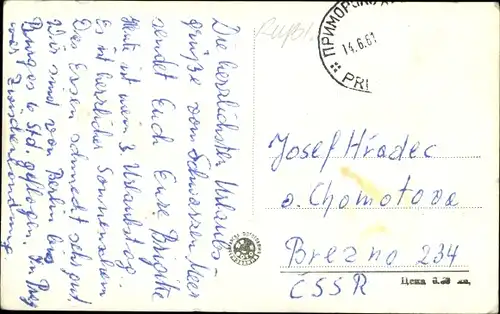 Die herzlichsten Urlaubs-
grüße vom Schwarzen Meer
sendet Euch Eure Brigitte
Heute ist mein 3. Urlaubstag.
Es ist herrlicher Sonnenschein
Das Essen schmeckt sehr gut.
Wir sind von Berlin bis
Burgas 6 Std. geflogen. In Prag
war Zwischenlandung
ПРИМОРСКО
14.6.61
PRI
Josef Hradec
o. Chomotova
Brezno 234
ČSSR
Цена